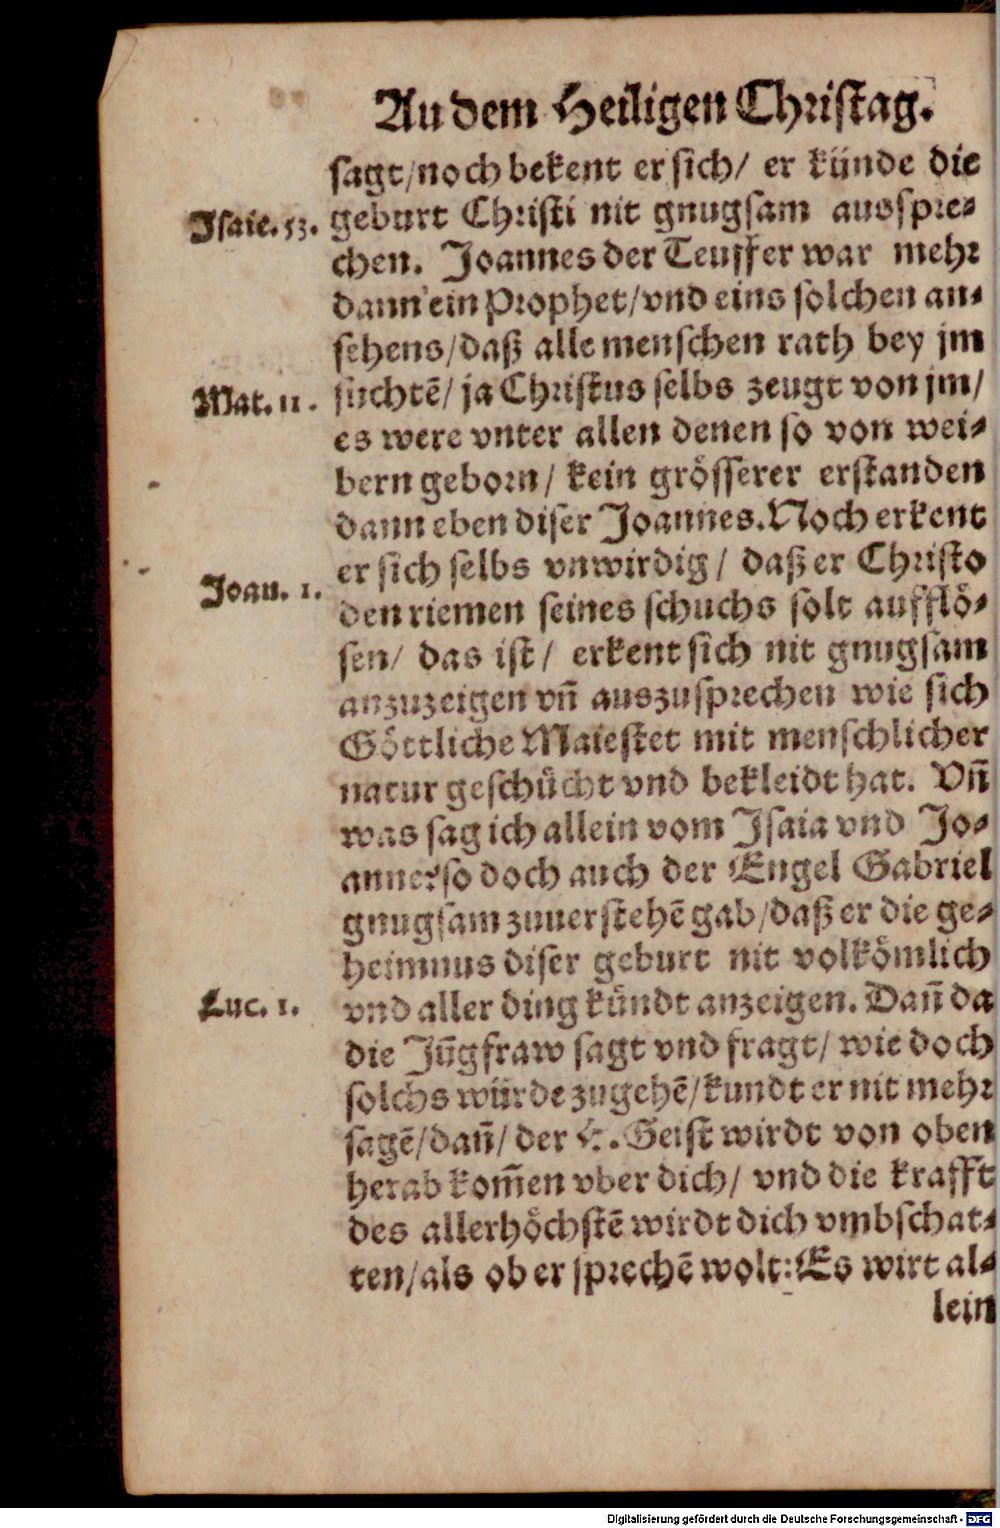 An dem Heiligen Christag.
sagt/noch bekent er sich/ er künde die
Isaie. 53.
geburt Christi nit gnugsam ausspre-
chen. Joannes der Teuffer war mehr
dann ein Prophet/vnd eins solchen an-
sehens/daß alle menschen rath bey jm
Mat. 11.
suchtē/ ja Christus selbs zeugt von jm/
es were vnter allen denen so von wei-
bern geborn/ kein grösserer erstanden
dann eben diser Joannes. Noch erkent
er sich selbs vnwirdig/ daß er Christo
Joan. 1.
den riemen seines schuchs solt aufflö-
sen/ das ist/ erkent sich nit gnugsam
anzuzeigen vñ auszusprechen wie sich
Göttliche Maiestet mit menschlicher
natur geschücht vnd bekleidt hat. Vñ
was sag ich allein vom Isaia vnd Jo-
anne? so doch auch der Engel Gabriel
gnugsam zuuerstehē gab/daß er die ge-
heimnus diser geburt nit volkömlich
Luc. 1.
vnd aller ding kündt anzeigen. Dañ da
die Jūgfraw sagt vnd fragt/ wie doch
solchs würde zugehē/kundt er nit mehr
sagē/dañ/ der H. Geist wirdt von oben
herab kom̄en vber dich/ vnd die krafft
des allerhöchstē wirdt dich vmbschat-
ten/als ob er sprechē wolt: Es wirt al-
lein
Digitalisierung gefördert durch die Deutsche Forschungsgemeinschaft - DFG